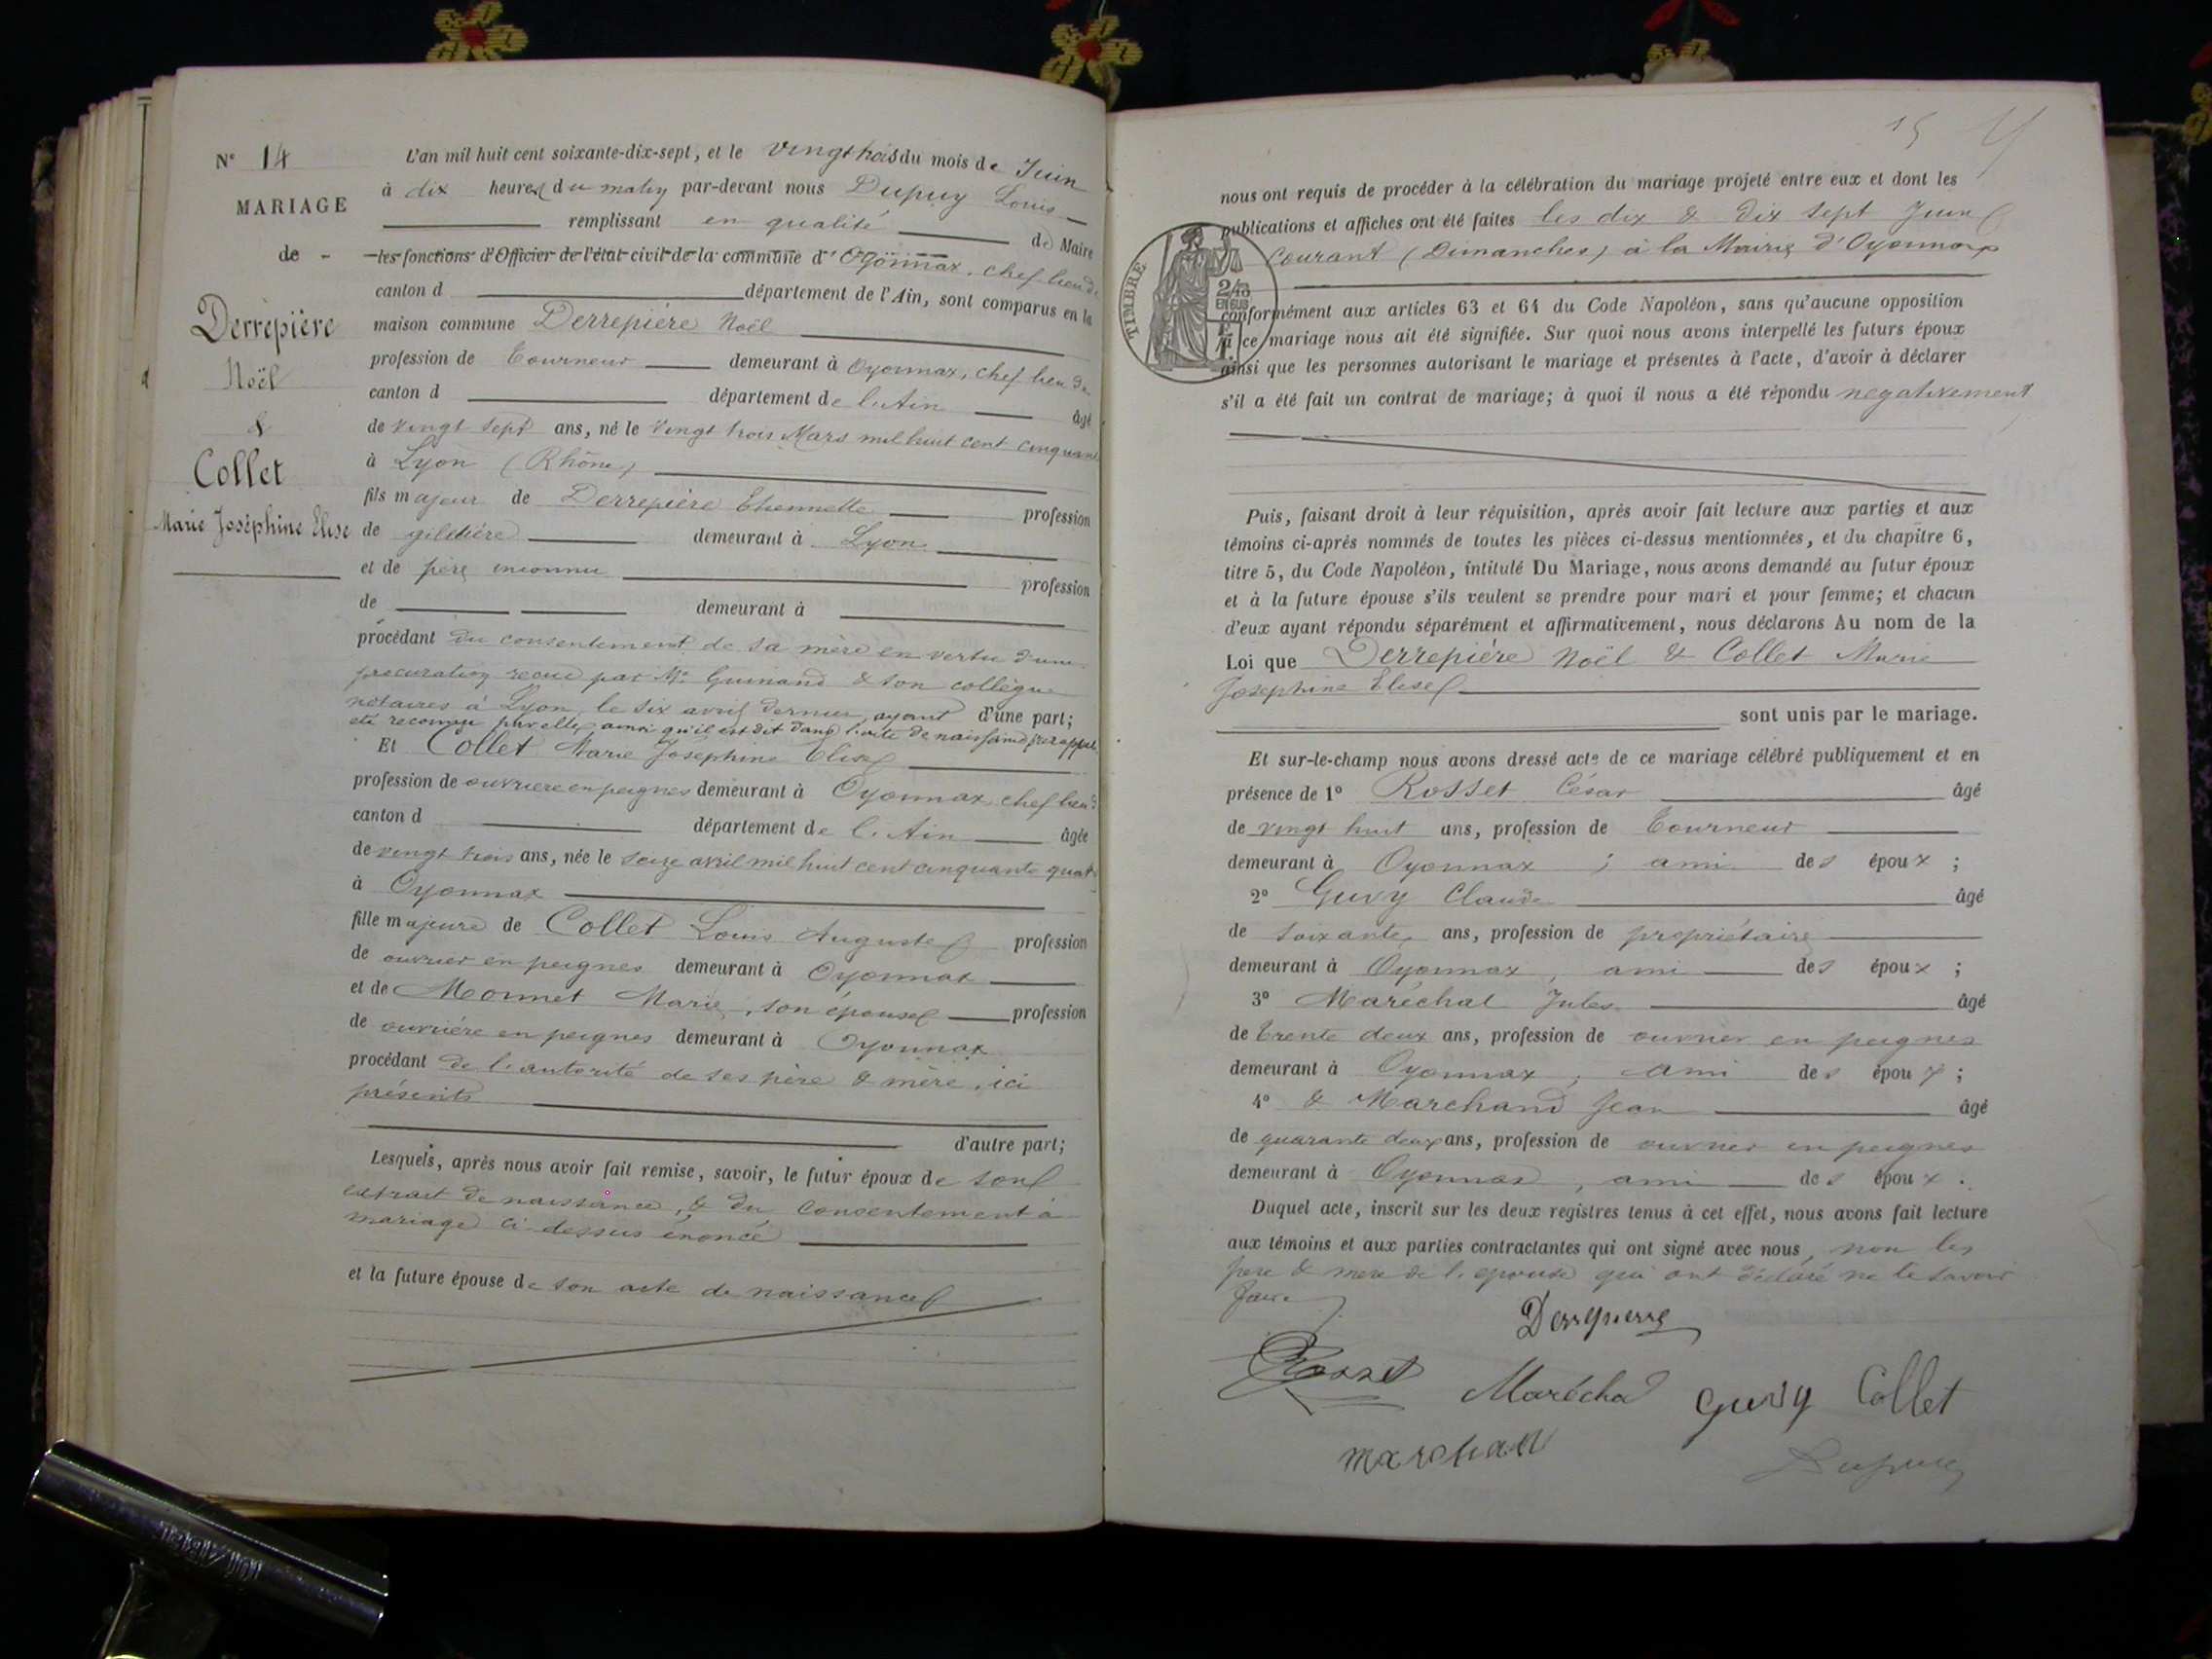 N° 14
MARIAGE
de -
Derrepière
Noël
&
Collet
Marie Joséphine Elise
L'an mil huit cent soixante-dix-sept, et le vingt trois du mois de Juin
à dix heures du matin par-devant nous Dupuy Louis
remplissant en qualité de Maire
les fonctions d'Officier de l'état civil de la commune d'Oyonnax, chef lieu de
canton d département de l'Ain, sont comparus en la
maison commune Derrepière Noël
profession de Tourneur demeurant à Oyonnax, chef lieu de
canton d département de l'Ain âgé
de vingt sept ans, né le vingt trois Mars mil huit cent cinquante
à Lyon (Rhône)
fils majeur de Derrepière Etiennette profession
de giletière demeurant à Lyon
et de père inconnu profession
de demeurant à
procédant du consentement de sa mère en vertu d'une
procuration reçue par Me Guinand & son collègue
notaires à Lyon, le six avril dernier, ayant d'une part;
été reconnu par elle, ainsi qu'il est dit dans l'acte de naissance
Et Collet Marie Josephine Elise
profession de ouvrière en peignes demeurant à Oyonnax, chef lieu de
canton d département de l'Ain âgée
de vingt trois ans, née le seize avril mil huit cent cinquante quatre
à Oyonnax
fille majeure de Collet Louis Auguste profession
de ouvrier en peignes demeurant à Oyonnax
et de Monnet Marie, son épouse profession
de ouvrière en peignes demeurant à Oyonnax
procédant de l'autorité de ses père & mère, ici
présents
d'autre part;
Lesquels, après nous avoir fait remise, savoir, le futur époux de son
extrait de naissance, & du consentement à
mariage ci-dessus énoncé
et la future épouse de son acte de naissance
15
nous ont requis de procéder à la célébration du mariage projeté entre eux et dont les
publications et affiches ont été faites les dix & dix sept Juin
courant (Dimanches) à la Mairie d'Oyonnax
TIMBRE
2/10
EN SUS
conformément aux articles 63 et 64 du Code Napoléon, sans qu'aucune opposition
à ce mariage nous ait été signifiée. Sur quoi nous avons interpellé les futurs époux
ainsi que les personnes autorisant le mariage et présentes à l'acte, d'avoir à déclarer
s'il a été fait un contrat de mariage; à quoi il nous a été répondu negativement
Puis, faisant droit à leur réquisition, après avoir fait lecture aux parties et aux
témoins ci-après nommés de toutes les pièces ci-dessus mentionnées, et du chapitre 6,
titre 5, du Code Napoléon, intitulé Du Mariage, nous avons demandé au futur époux
et à la future épouse s'ils veulent se prendre pour mari et pour femme; et chacun
d'eux ayant répondu séparément et affirmativement, nous déclarons Au nom de la
Loi que Derrepière Noël & Collet Marie
Josephine Elise
sont unis par le mariage.
Et sur-le-champ nous avons dressé acte de ce mariage célébré publiquement et en
présence de 1° Rosset César âgé
de vingt huit ans, profession de Tourneur
demeurant à Oyonnax ; ami des époux ;
2° Guvy Claude âgé
de soixante ans, profession de propriétaire
demeurant à Oyonnax, ami des époux ;
3° Maréchal Jules âgé
de trente deux ans, profession de ouvrier en peignes
demeurant à Oyonnax ; ami des époux ;
4° & Marchand Jean âgé
de quarante deux ans, profession de ouvrier en peignes
demeurant à Oyonnax, ami des époux .
Duquel acte, inscrit sur les deux registres tenus à cet effet, nous avons fait lecture
aux témoins et aux parties contractantes qui ont signé avec nous, non les
père & mère de l'épouse qui ont déclaré ne le savoir
faire
Derrepierre
Rosset Maréchal Guvy Collet
marchand
Dupuy